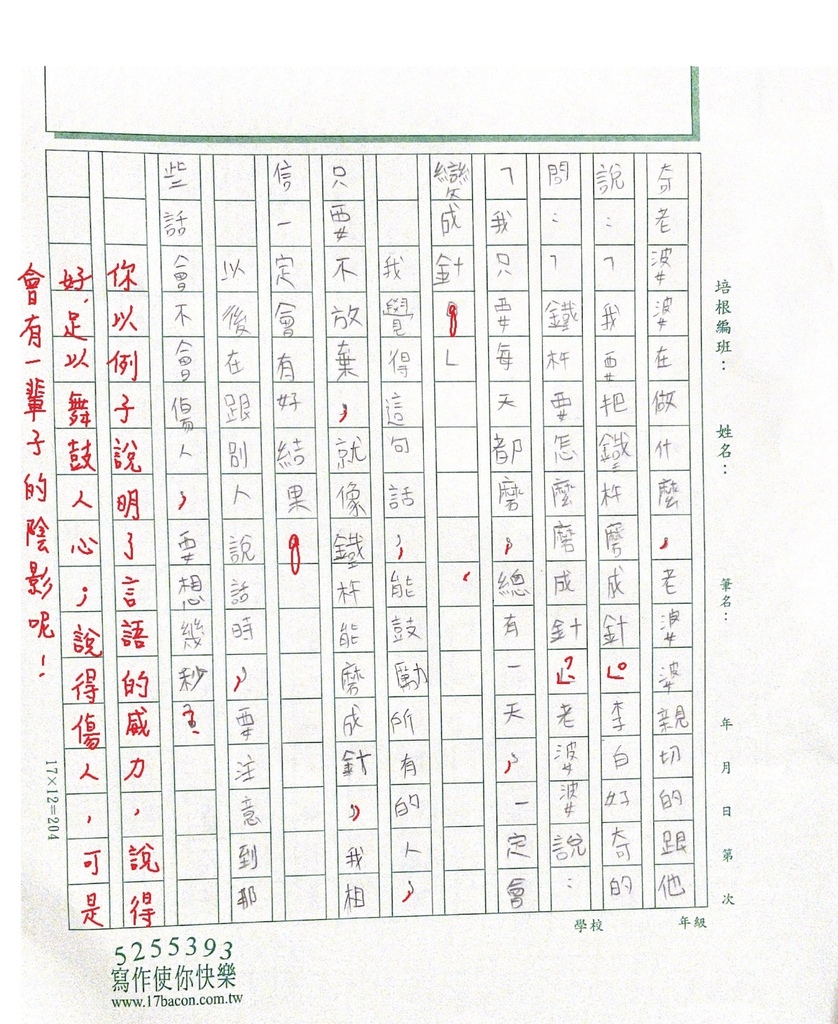 培根編班： 姓名： 筆名： 年 月 日 第 次
學校 年級
奇老婆婆在做什麼，老婆婆親切的跟他
說：「我要把鐵杵磨成針。」李白好奇的
問：「鐵杵要怎麼磨成針？」老婆婆說：
「我只要每天都磨，總有一天，一定會
變成針。」
我覺得這句話，能鼓勵所有的人，
只要不放棄，就像鐵杵能磨成針，我相
信一定會有好結果。
以後在跟別人說話時，要注意到那
些話會不會傷人，要想幾秒
你以例子說明了言語的威力，說得
好，足以舞鼓人心；說得傷人，可是
會有一輩子的陰影呢！
17×12=204
5255393
寫作使你快樂
www.17bacon.com.tw